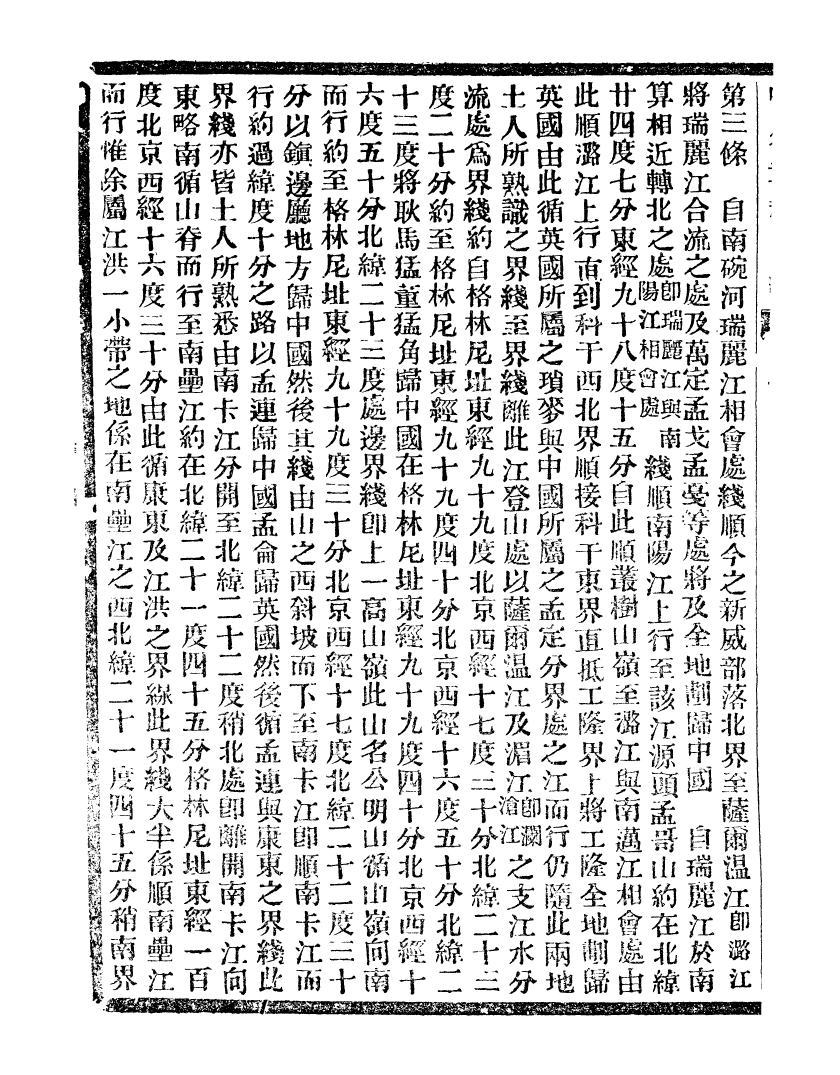 第三條　自南碗河瑞麗江相會處綫順今之新威部落北界至薩爾温江卽潞江
將瑞麗江合流之處及萬定孟戈孟戞等處將及全地劃歸中國　自瑞麗江於南
算相近轉北之處卽瑞麗江與南陽江相會處綫順南陽江上行至該江源頭孟哥山約在北緯
廿四度七分東經九十八度十五分自此順叢樹山嶺至潞江與南邁江相會處由
此順潞江上行直到科干西北界順接科干東界直抵工隆界上將工隆全地劃歸
英國由此循英國所屬之瑣麥與中國所屬之孟定分界處之江而行仍隨此兩地
土人所熟識之界綫至界綫離此江登山處以薩爾温江及湄江卽瀾滄江之支江水分
流處爲界綫約自格林尼址東經九十九度北京西經十七度三十分北緯二十三
度二十分約至格林尼址東經九十九度四十分北京西經十六度五十分北緯二
十三度將耿馬猛董猛角歸中國在格林尼址東經九十九度四十分北京西經十
六度五十分北緯二十三度處邊界綫卽上一高山嶺此山名公明山循山嶺向南
而行約至格林尼址東經九十九度三十分北京西經十七度北緯二十二度三十
分以鎮邊廳地方歸中國然後其綫由山之西斜坡而下至南卡江卽順南卡江而
行約過緯度十分之路以孟連歸中國孟侖歸英國然後循孟連與康東之界綫此
界綫亦皆土人所熟悉由南卡江分開至北緯二十二度稍北處卽離開南卡江向
東略南循山脊而行至南壘江約在北緯二十一度四十五分格林尼址東經一百
度北京西經十六度三十分由此循康東及江洪之界線此界綫大半係順南壘江
而行惟除屬江洪一小帶之地係在南壘江之西北緯二十一度四十五分稍南界